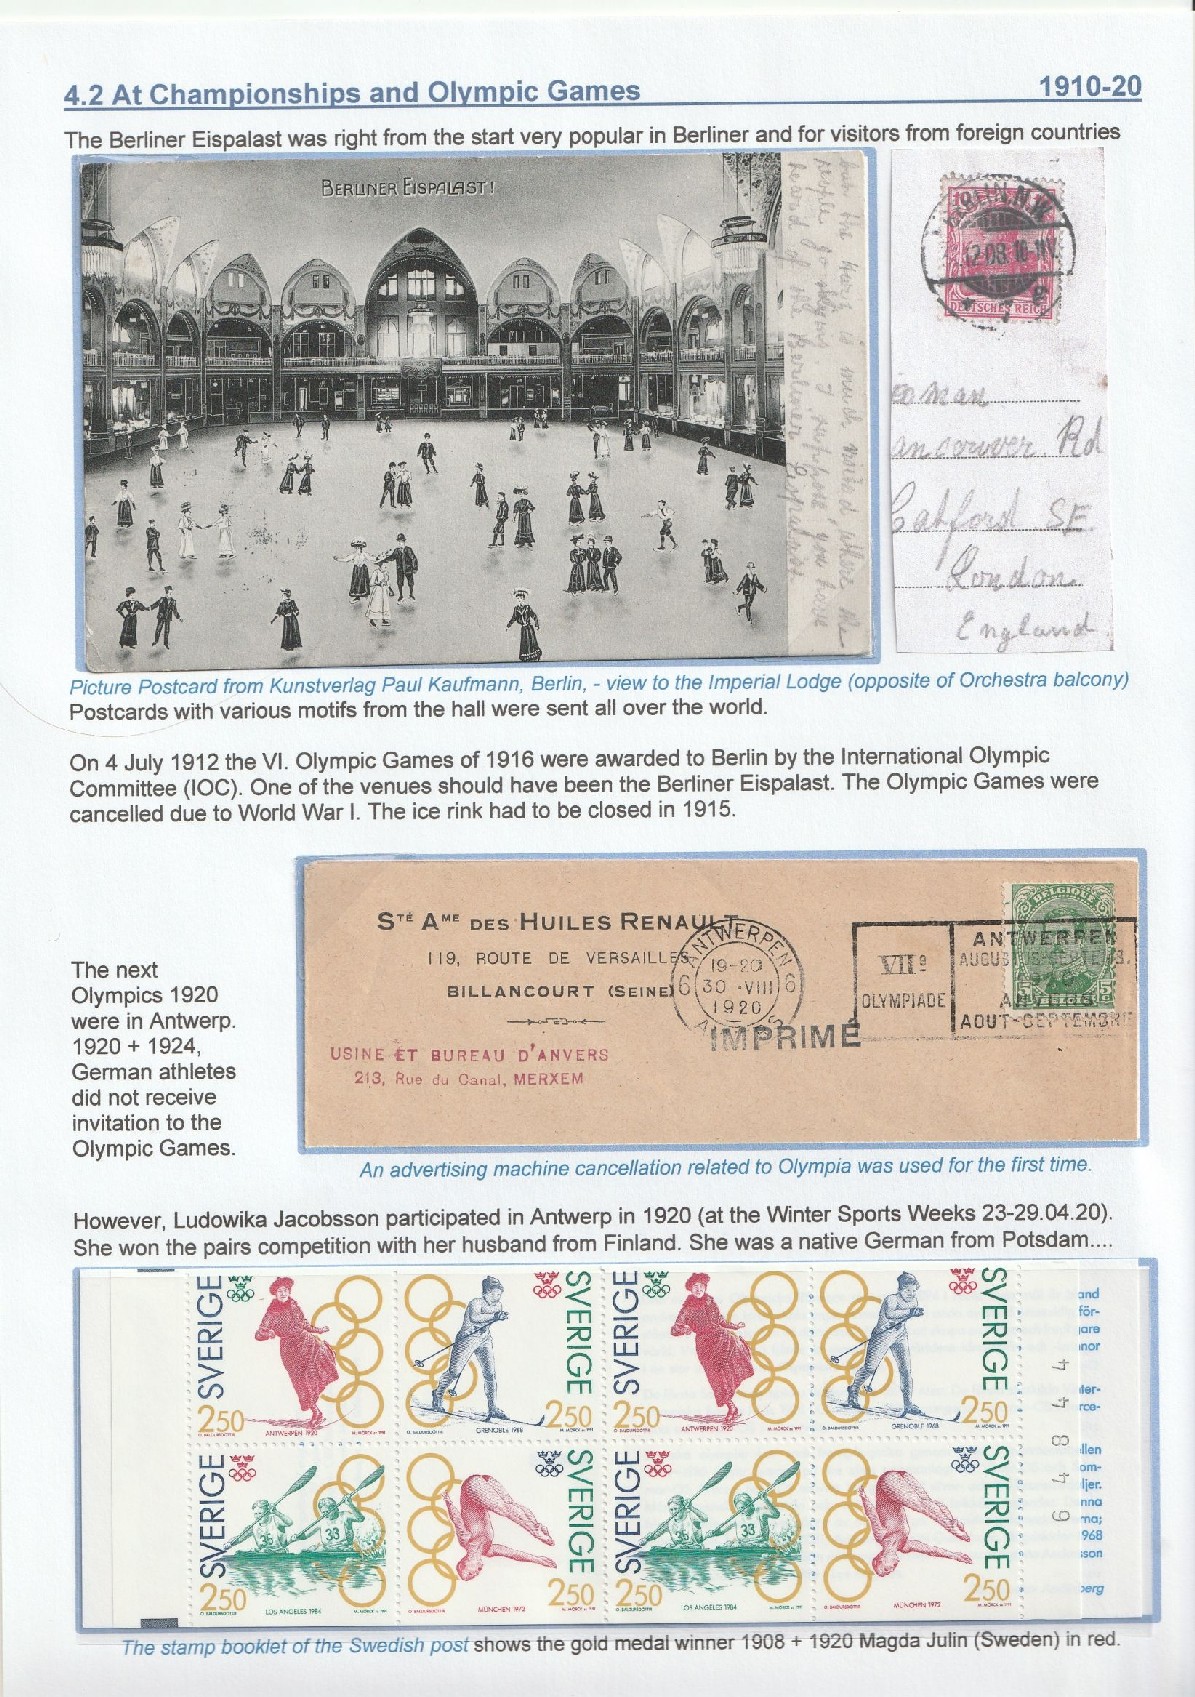 4.2 At Championships and Olympic Games
1910-20
The Berliner Eispalast was right from the start very popular in Berliner and for visitors from foreign countries
BERLINER EISPALAST!
BERLIN. N.W.
DEUTSCHES REICH
Vancouver Rd
Catford SE
London
England
Picture Postcard from Kunstverlag Paul Kaufmann, Berlin, - view to the Imperial Lodge (opposite of Orchestra balcony)
Postcards with various motifs from the hall were sent all over the world.
On 4 July 1912 the VI. Olympic Games of 1916 were awarded to Berlin by the International Olympic
Committee (IOC). One of the venues should have been the Berliner Eispalast. The Olympic Games were
cancelled due to World War I. The ice rink had to be closed in 1915.
The next
Olympics 1920
were in Antwerp.
1920 + 1924,
German athletes
did not receive
invitation to the
Olympic Games.
STÉ AME DES HUILES RENAULT
119, ROUTE DE VERSAILLES
BILLANCOURT (SEINE)
USINE ET BUREAU D'ANVERS
213, Rue du Canal, MERXEM
ANTWERPEN
6 19-20 6
30 -VIII
1920
IMPRIMÉ
VIIe
OLYMPIADE
ANTWERPEN
AOUT-SEPTEMBRE
BELGIQUE
5c 5c
BELGIË
An advertising machine cancellation related to Olympia was used for the first time.
However, Ludowika Jacobsson participated in Antwerp in 1920 (at the Winter Sports Weeks 23-29.04.20).
She won the pairs competition with her husband from Finland. She was a native German from Potsdam....
SVERIGE 2.50 ANTWERPEN 1920
SVERIGE 2.50 GRENOBLE 1968
SVERIGE 2.50 ANTWERPEN 1920
SVERIGE 2.50 GRENOBLE 1968
SVERIGE 2.50 36 33 LOS ANGELES 1984
SVERIGE 2.50 MÜNCHEN 1972
SVERIGE 2.50 36 33 LOS ANGELES 1984
SVERIGE 2.50 MÜNCHEN 1972
and
för-
jare
nor
der-
rce-
llen
om-
ljer.
nna
ma;
968
sson
berg
44849
The stamp booklet of the Swedish post shows the gold medal winner 1908 + 1920 Magda Julin (Sweden) in red.